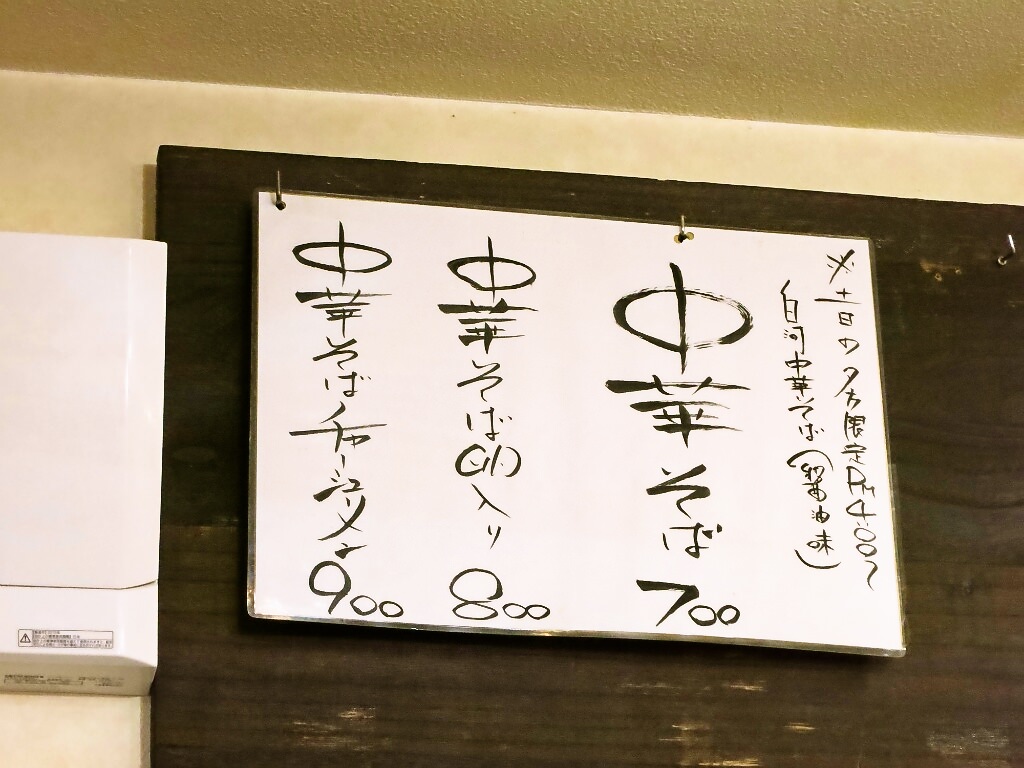 ※土日の夕方限定PM4:00〜
白河中華そば(醤油味)
中華そば
700
中華そば卵入り
800
中華そばチャーシューメン
900